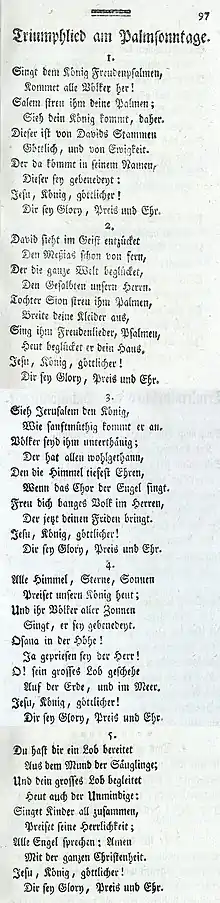 97
Triumphlied am Palmsonntage.
1.
Singt dem König Freudenpsalmen,
Kommet alle Völker her!
Salem streu ihm deine Palmen;
Sieh dein König kommt, daher.
Dieser ist von Davids Stammen
Göttlich, und von Ewigkeit.
Der da kömmt in seinem Namen,
Dieser sey gebenedeyt:
Jesu, König, göttlicher!
Dir sey Glory, Preis und Ehr.
2.
David sieht im Geist entzücket
Den Meßias schon von fern,
Der die ganze Welt beglücket,
Den Gesalbten unsern Herrn.
Tochter Sion streu ihm Palmen,
Breite deine Kleider aus,
Sing ihm Freudenlieder, Psalmen,
Heut beglücket er dein Haus.
Jesu, König, göttlicher!
Dir sey Glory, Preis und Ehr.
3.
Sieh Jerusalem den König,
Wie sanftmüthig kommt er an.
Völker seyd ihm unterthänig;
Der hat allen wohlgethann,
Den die Himmel tiefest Ehren,
Wenn das Chor der Engel singt.
Freu dich banges Volk im Herren,
Der jetzt deinen Friden bringt.
Jesu, König, göttlicher!
Dir sey Glory, Preis und Ehr.
4.
Alle Himmel, Sterne, Sonnen
Preiset unsern König heut;
Und ihr Völker aller Zonnen
Singt, er sey gebenedeyt.
Osana in der Höhe!
Ja gepriesen sey der Herr!
O! sein grosses Lob geschehe
Auf der Erde, und im Meer.
Jesu, König, göttlicher!
Dir sey Glory, Preis und Ehr.
5.
Du hast dir ein Lob bereitet
Aus dem Mund der Säuglinge;
Und dein grosses Lob begleitet
Heut auch der Unmindige:
Singet Kinder all zusammen,
Preiset seine Herrlichkeit;
Alle Engel sprechen: Amen
Mit der ganzen Christenheit.
Jesu, König, göttlicher!
Dir sey Glory, Preis und Ehr.